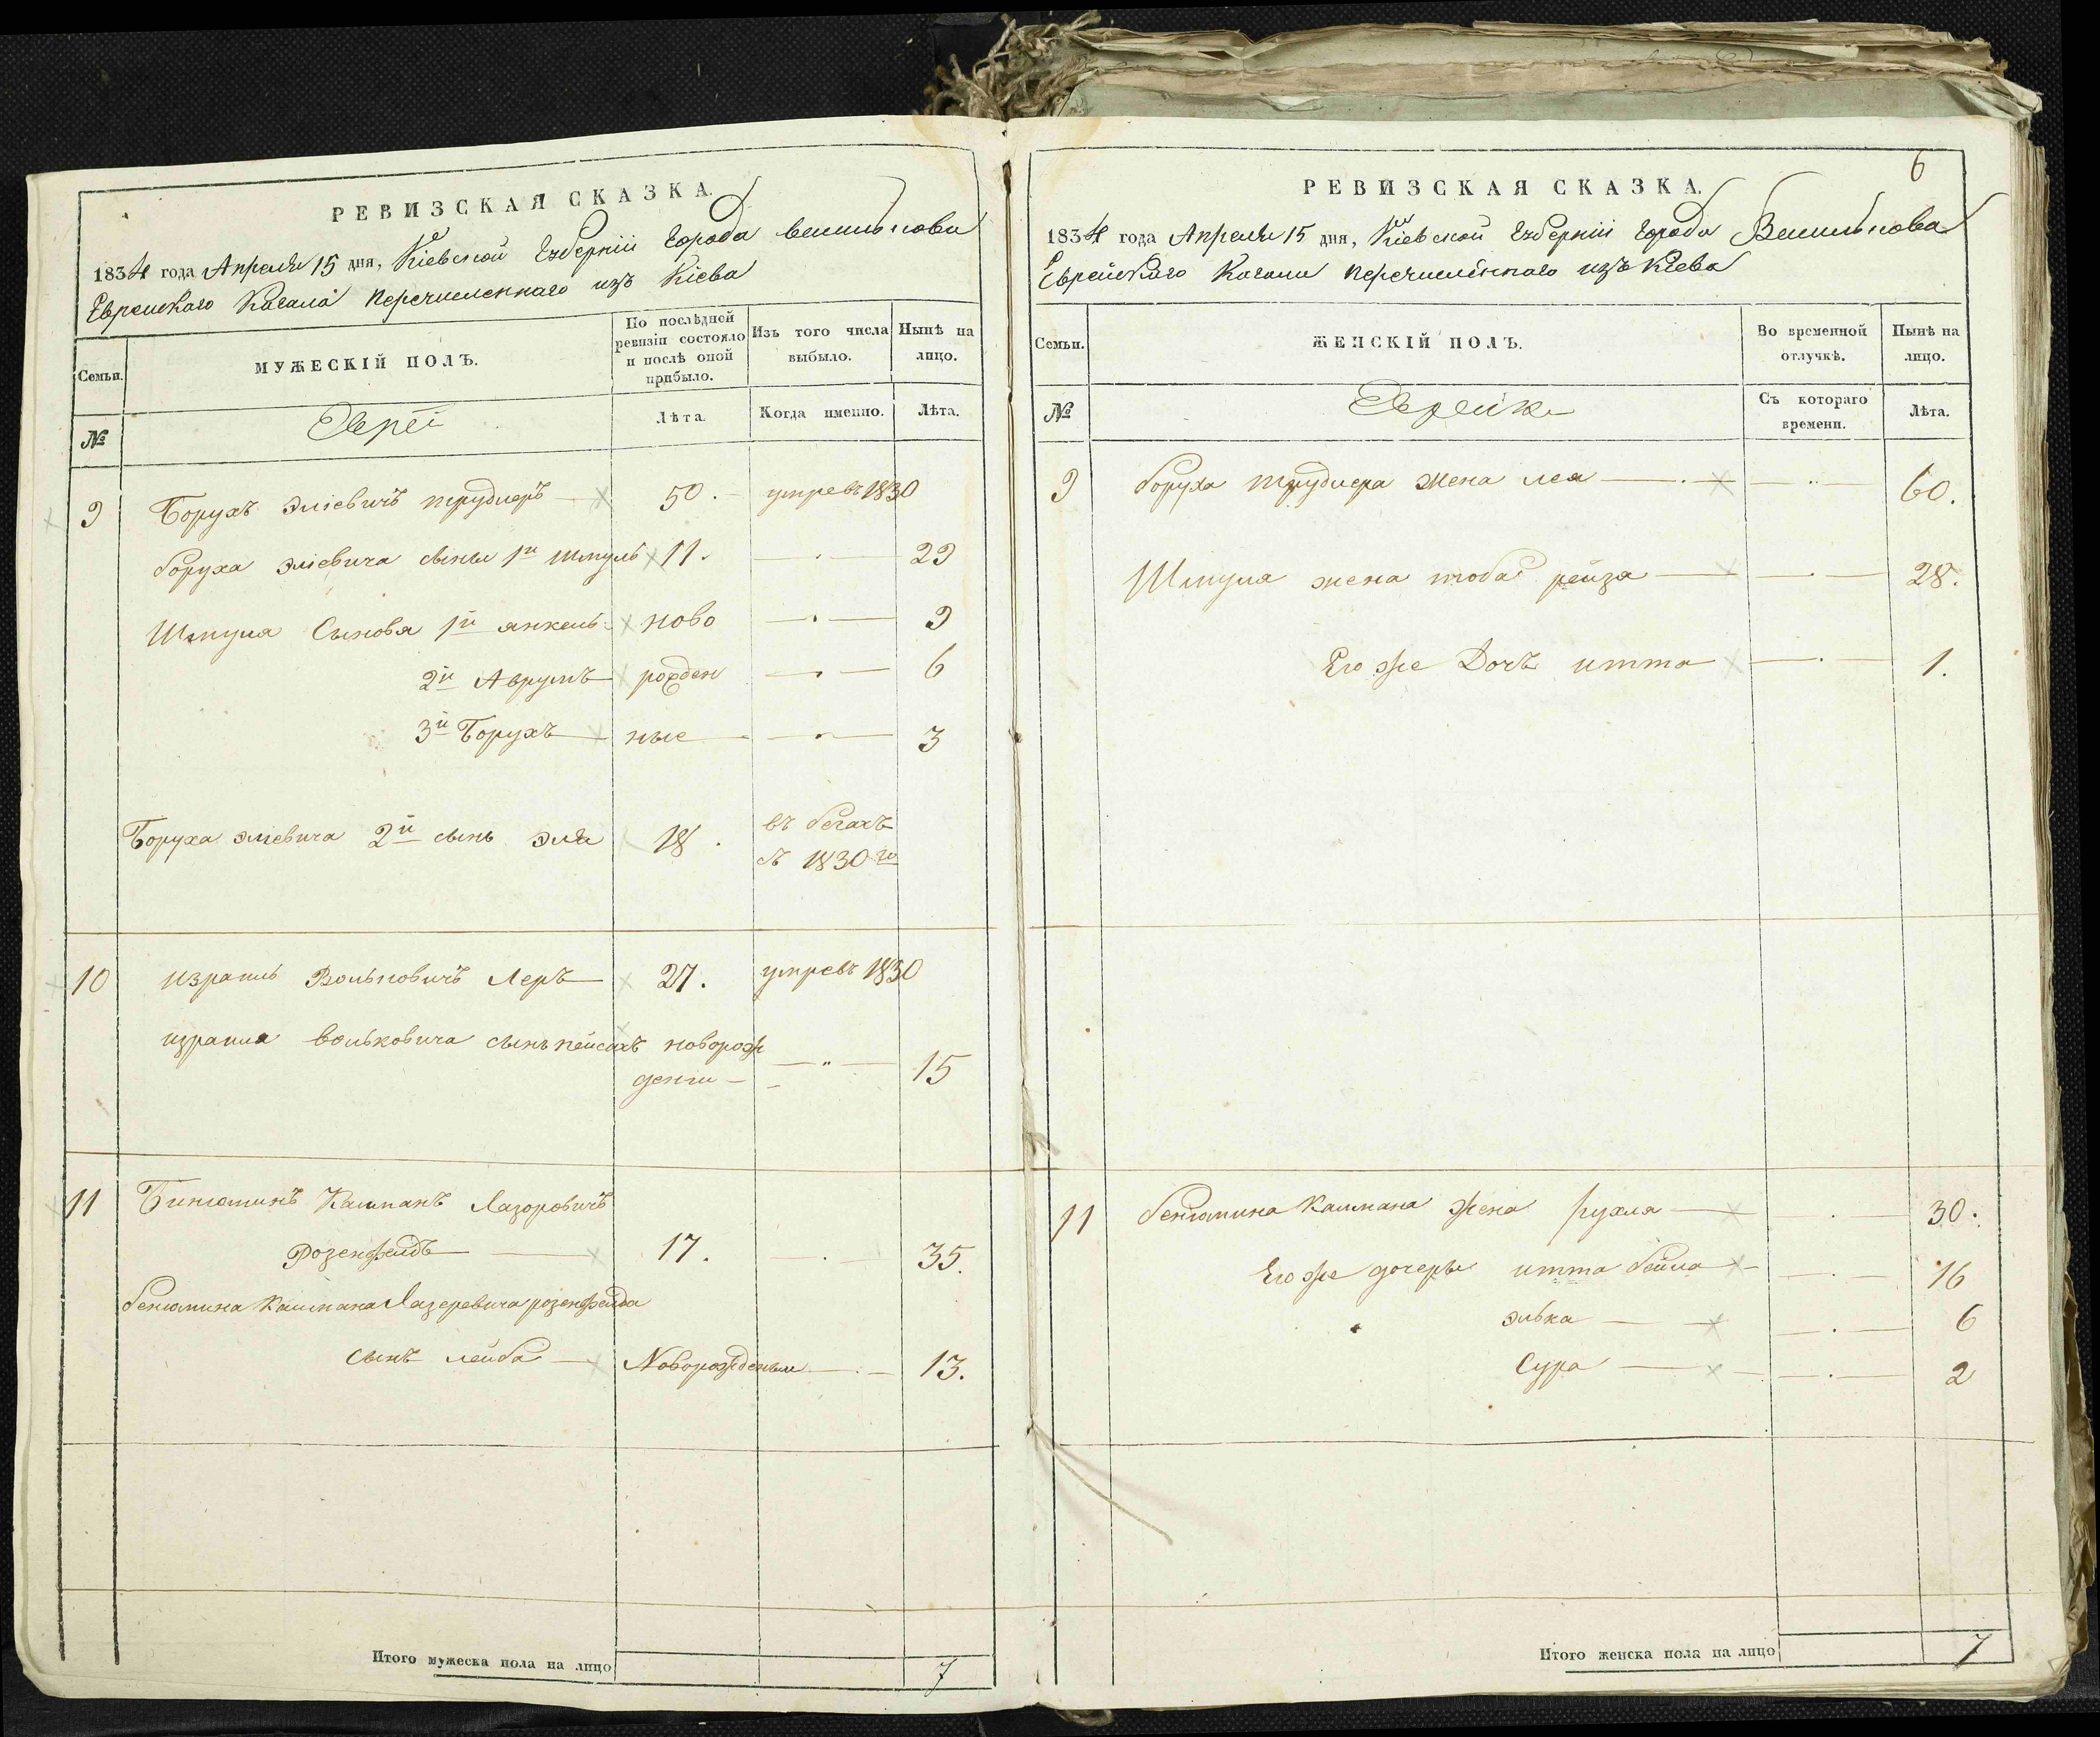 РЕВИЗСКАЯ СКАЗКА.
1834 года Апреля 15 дня, Кіевской Губерніи Города Василькова
Еврейскаго Кагала перечисленнаго изъ Кіева
Семьи.
МУЖЕСКІЙ ПОЛЪ.
По послѣдней ревизіи состояло и послѣ оной прибыло.
Изъ того числа выбыло.
Нынѣ на лицо.
№
Евреи
Лѣта.
Когда именно.
Лѣта.
9 Борухъ Эліевичъ трудлеръ 50. умре въ 1830
боруха эліевича сыны 1й Шмуль 11. 29
Шмуля Сыновя 1й янкель ново 9
2й Аврумъ рожден 6
3й Борухъ ные 3
Боруха эліевича 2й сынъ эля 18. въ бегахъ
съ 1830 го
10 израиль Вольковичъ Леръ 27. умре въ 1830
израиля вольковича сынъ пейсахъ новорож
денни 15
11 Бинюминъ Калманъ Лазоровичъ
Розенфелдъ 17. 35.
бенюмина Калмана Лазеревича розенфелда
сынъ лейба Новорожденыи 13.
Итого мужеска пола на лицо 7
6
РЕВИЗСКАЯ СКАЗКА.
1834 года Апреля 15 дня, Кіевской Губерніи Города Василькова
Еврейскаго Кагала перечисленнаго изъ Кіева
Семьи.
ЖЕНСКІЙ ПОЛЪ.
Во временной отлучкѣ.
Нынѣ на лицо.
№
Еврейки
Съ котораго времени.
Лѣта.
9 боруха трудлера жена лея 60.
Шмуля жена тоба рейза 28.
Его же Дочь итта 1.
11 бенюмина Калмана жена рухля 30.
Его же дочеры итта бейла 16
элька 6
Сура 2
Итого женска пола на лицо 7